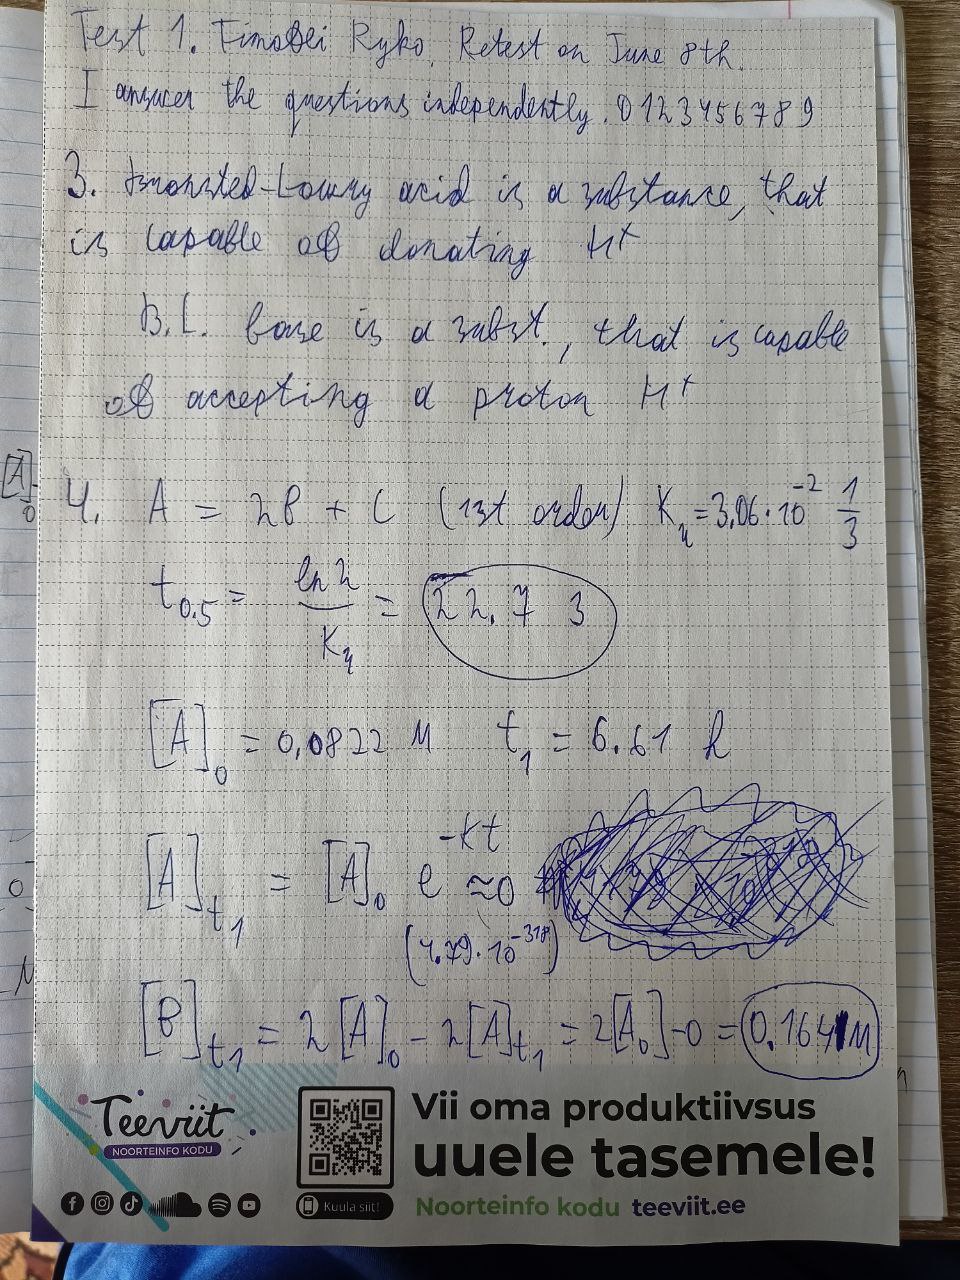 Test 1. Timofei Ryko, Retest on June 8th.
I answer the questions independently. 0123456789
3. Bronsted-Lowry acid is a substance, that
is capable of donating H+
B.L. base is a subst., that is capable
of accepting a proton H+
[A]
0
4. A = 2B + C (1st order) K₄ = 3,06·10⁻² 1/3
t₀.₅ = ln 2 / K₄ = 22.7 3
[A]₀ = 0,0822 M t₁ = 6.61 h
[A]t₁ = [A]₀ e^-kt ≈0
(4.79·10⁻³¹⁸)
[B]t₁ = 2[A]₀ - 2[A]t₁ = 2[A₀]-0 = 0.164 M
Teeviit
NOORTEINFO KODU
Kuula siit!
Vii oma produktiivsus
uuele tasemele!
Noorteinfo kodu teeviit.ee